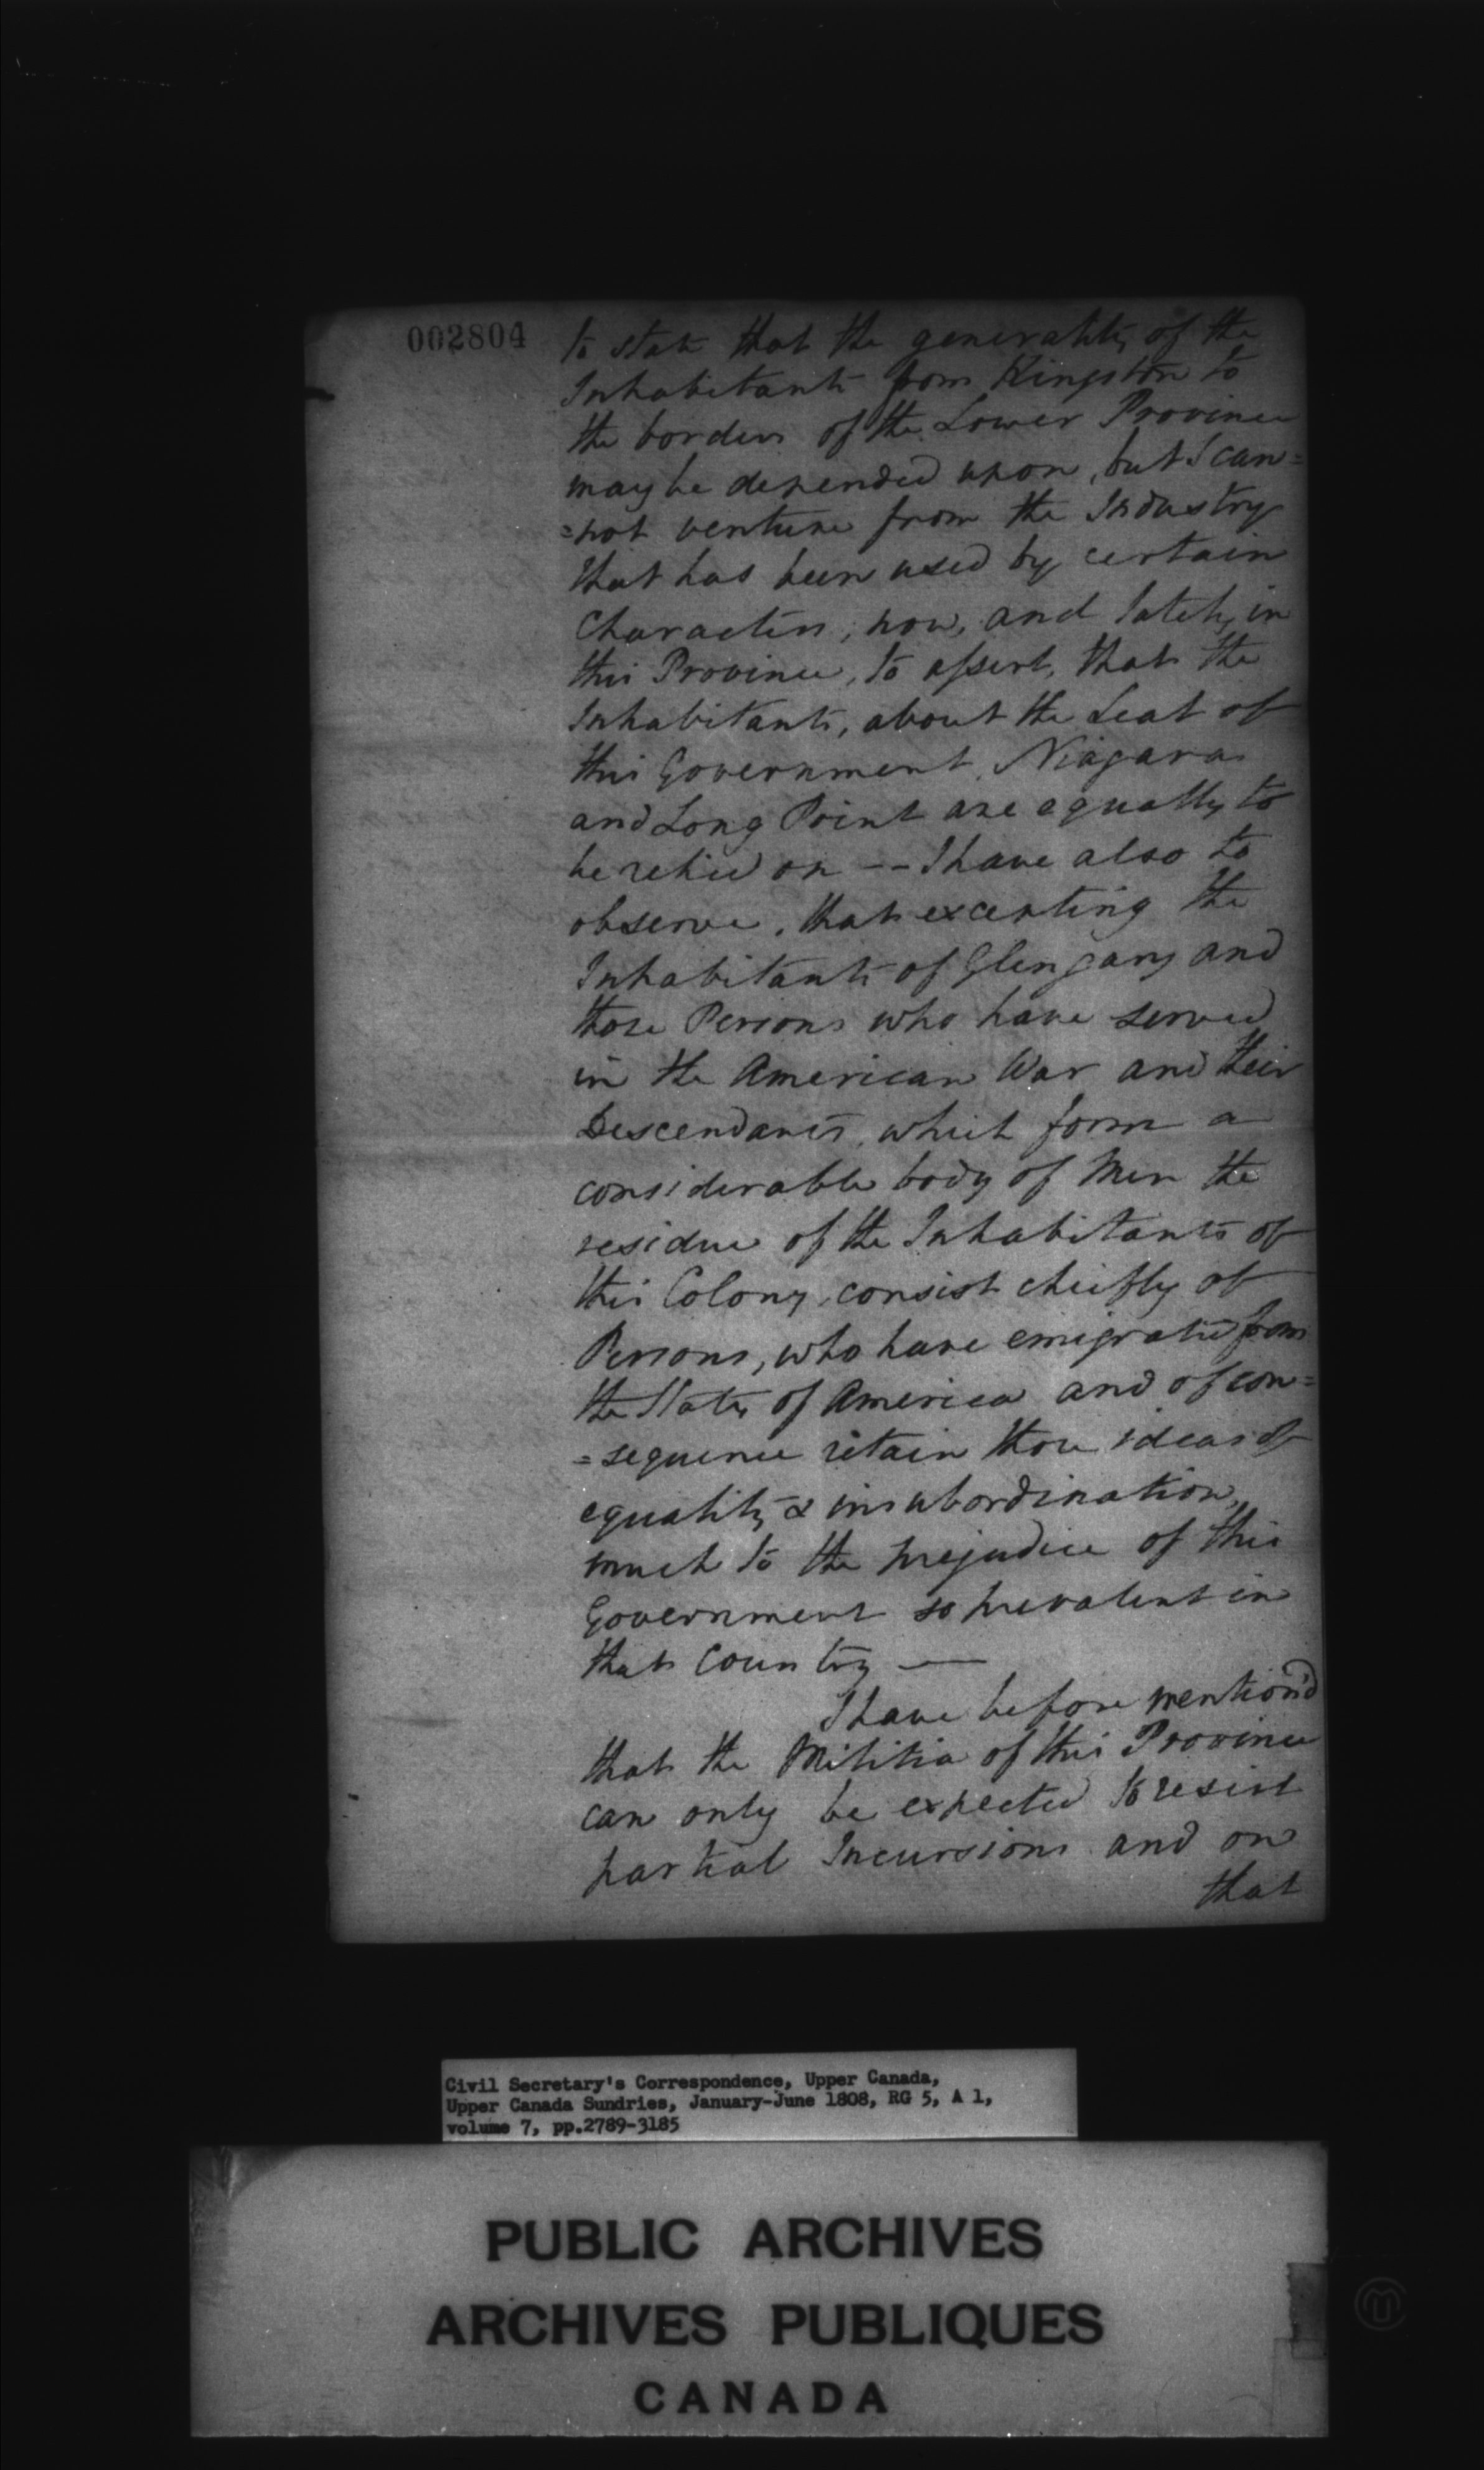 002804
to state that the generality of the
Inhabitants from Kingston to
the borders of the Lower Province
may be depended upon, but I can=
=not venture from the Industry
that has been used by certain
Characters, now, and lately, in
this Province, to assert, that the
Inhabitants, about the Seat of
this Government, Niagara
and Long Point are equally to
be relied on -- I have also to
observe, that excepting the
Inhabitants of Glengary and
those Persons who have served
in the American War and their
Descendants, which form a
considerable body of Men the
residue of the Inhabitants of
this Colony, consist chiefly of
Persons, who have emigrated from
the States of America and of con=
=sequence retain those ideas of
equality & insubordination,
much to the prejudice of this
Government so prevalent in
that Country —
I have before mention'd
that the Militia of this Province
can only be expected to resist
partial Incursions and on
that
Civil Secretary's Correspondence, Upper Canada,
Upper Canada Sundries, January-June 1808, RG 5, A 1,
volume 7, pp.2789-3185
PUBLIC ARCHIVES
ARCHIVES PUBLIQUES
CANADA